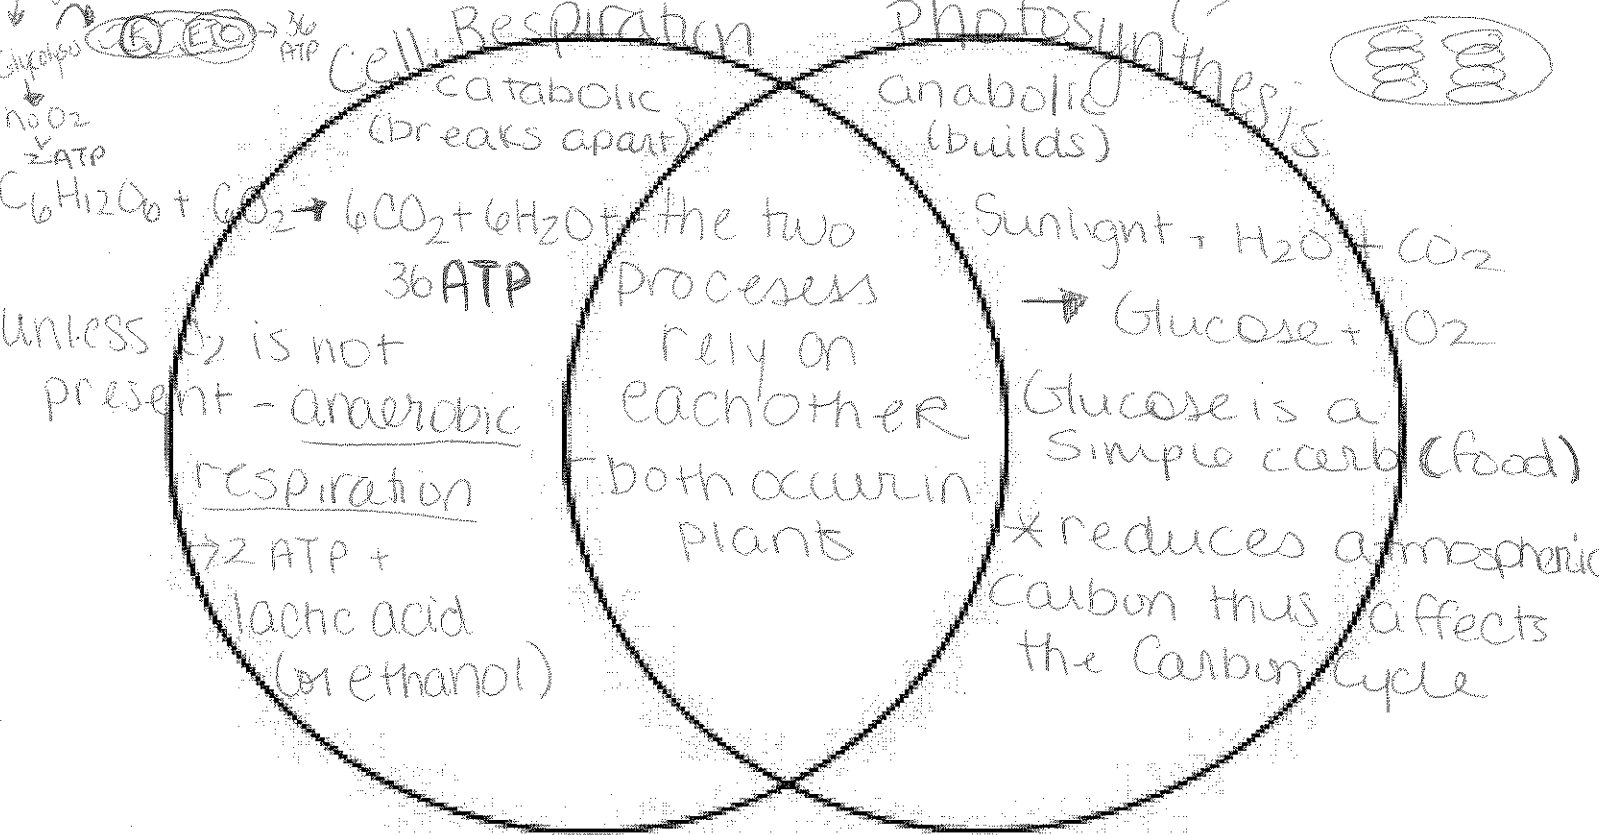 Cell. Respiration
Photosynthesis
Glycolysis
ETC → 36
ATP
no O2
2 ATP
catabolic
(breaks apart)
C6H12O6 + 6O2 → 6CO2 + 6H2O +
36 ATP
unless O2 is not
present - anaerobic
respiration
→ 2 ATP +
lactic acid
(or ethanol)
- the two
processess
rely on
eachother
- both occur in
plants
anabolic
(builds)
Sunlight + H2O + CO2
→ Glucose + O2
Glucose is a
simple carb (food)
* reduces atmospheric
Carbon thus affects
the Carbon Cycle